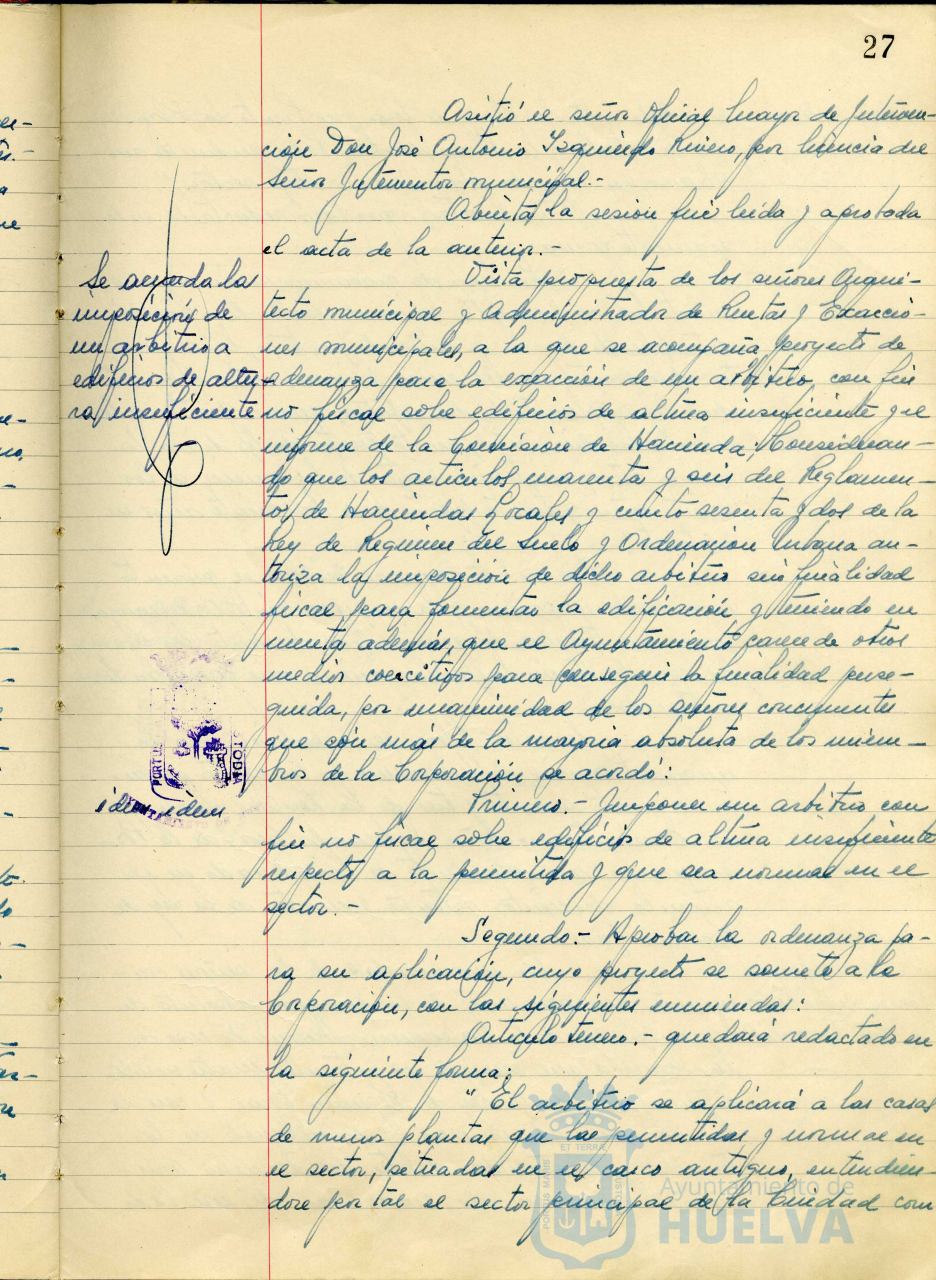 27
Asistió el señor Oficial Mayor de Interven-
ción Don José Antonio Izquierdo Rivero, por licencia del
Señor Interventor municipal.-
Abierta la sesión fué leida y aprobada
el acta de la anterior.-
Se acuerda la
imposición de
un arbitrio a
edificios de altu-
ra insuficiente
Vista propuesta de los señores Arqui-
tecto municipal y Administrador de Rentas y Exaccio-
nes municipales, a la que se acompaña proyecto de
ordenanza para la exacción de un arbitrio, con fin
no fiscal sobre edificios de altura insuficiente y el
informe de la Comisión de Hacienda; Consideran-
do que los articulos cuarenta y seis del Reglamen-
to, de Haciendas Locales y ciento sesenta y dos de la
Ley de Regimen del Suelo y Ordenación Urbana au-
toriza la imposición de dicho arbitrio sin finalidad
fiscal, para fomentar la edificación y teniendo en
cuenta además, que el Ayuntamiento carece de otros
medios coercitivos para conseguir la finalidad perse-
guida, por unanimidad de los señores concurrentes
que son más de la mayoria absoluta de los miem-
bros de la Corporación se acordó:
idem idem
Primero.- Imponer un arbitrio con
fin no fiscal sobre edificios de altura insuficiente
respecto a la permitida y que sea normal en el
sector.-
Segundo.- Aprobar la ordenanza pa-
ra su aplicación, cuyo proyecto se somete a la
Corporación, con las siguientes enmiendas:
Articulo tercero.- quedará redactado en
la siguiente forma:
"El arbitrio se aplicará a las casas
de menos plantas que las permitidas y normal en
el sector, situadas en el casco antiguo, entendien-
dose por tal el sector principal de la Ciudad com
Ayuntamiento de
HUELVA